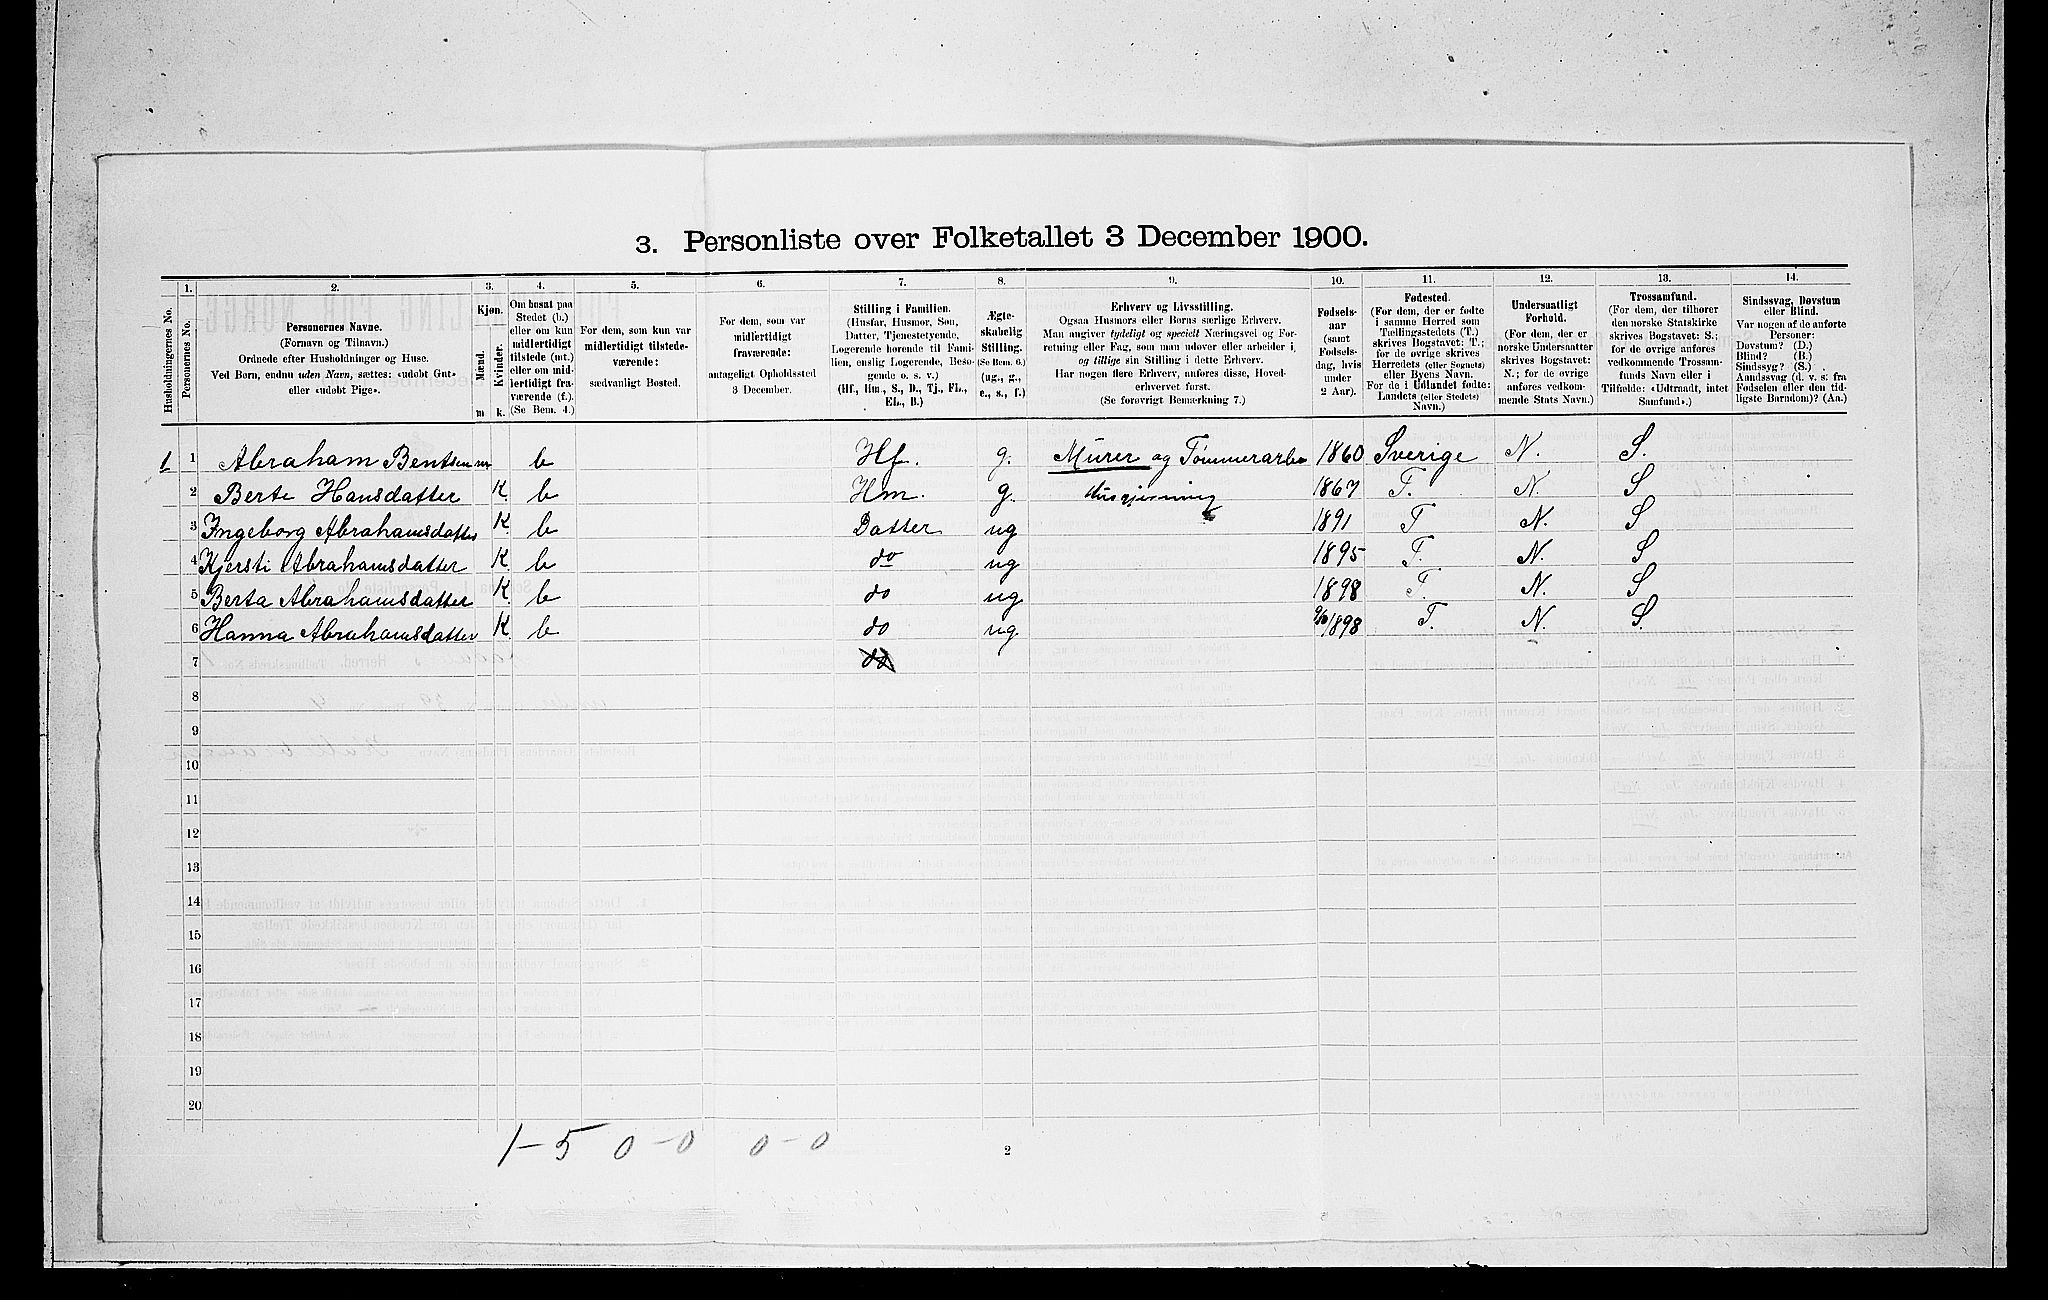 3. Personliste over Folketallet 3 December 1900.
1. 2. 3. 4. 5. 6. 7. 8. 9. 10. 11. 12. 13. 14.
Husholdningernes No.
Personernes No.
Personernes Navne.
(Fornavn og Tilnavn.)
Ordnede efter Husholdninger og Huse.
Ved Børn, endnu uden Navn, sættes: «udøbt Gut»
eller «udøbt Pige».
Kjøn.
Mænd.
Kvinder.
m k.
Om bosat paa
Stedet (b.)
eller om kun
midlertidigt
tilstede (mt.)
eller om mid-
lertidigt fra-
værende (f.).
(Se Bem. 4.)
For dem, som kun var
midlertidigt tilstede-
værende:
sædvanligt Bosted.
For dem, som var
midlertidigt
fraværende:
antageligt Opholdssted
3 December.
Stilling i Familien.
(Husfar, Husmor, Søn,
Datter, Tjenestetyende,
Logerende hørende til Fami-
lien, enslig Logerende, Besø-
gende o. s. v.)
(Hf., Hm., S., D., Tj., FL.,
EL., B.)
Ægte-
skabelig
Stilling.
(Se Bem. 6.)
(ug., g.,
e., s., f.)
Erhverv og Livsstilling.
Ogsaa Husmors eller Børns særlige Erhverv.
Man angiver tydeligt og specielt Næringsvei og For-
retning eller Fag, som man udøver eller arbeider i,
og tillige sin Stilling i dette Erhverv.
Har nogen flere Erhverv, anføres disse, Hoved-
erhvervet først.
(Se forøvrigt Bemærkning 7.)
Fødsels-
aar
(samt
Fødsels-
dag, hvis
under
2 Aar).
Fødested.
(For dem, der er fødte
i samme Herred som
Tællingsstedets (T.)
skrives Bogstavet: T.;
for de øvrige skrives
Herredets (eller Sognets)
eller Byens Navn.
For de i Udlandet fødte:
Landets (eller Stedets)
Navn.)
Undersaatligt
Forhold.
(For dem, der er
norske Undersaatter
skrives Bogstavet:
N.; for de øvrige
anføres vedkom-
mende Stats Navn.)
Trossamfund.
(For dem, der tilhører
den norske Statskirke
skrives Bogstavet: S.;
for de øvrige anføres
vedkommende Trossam-
funds Navn eller i
Tilfælde: «Udtraadt, intet
Samfund».)
Sindssvag, Døvstum
eller Blind.
Var nogen af de anførte
Personer:
Døvstum? (D.)
Blind? (B.)
Sindssyg? (S.)
Aandssvag (d. v. s. fra
Fødselen eller den tid-
ligste Barndom)? (Aa.)
1 1 Abraham Bentsen m b Hf. g. Murer og Tømmerarb 1860 Sverige N. S.
2 Berte Hansdatter K. b Hm. g. Husgjerning 1867 T. N. S
3 Ingeborg Abrahamsdatter K. b Datter ug 1891 T N. S
4 Kjersti Abrahamsdatter K. b do ug 1895 T. N. S
5 Berta Abrahamsdatter K. b do ug 1898 T. N. S
6 Hanna Abrahamsdatter K. b do ug. 1898 T. N. S.
7 do
8
9
10
11
12
13
14
15
16
17
18
19
20
1-5 0-0 0-0
2